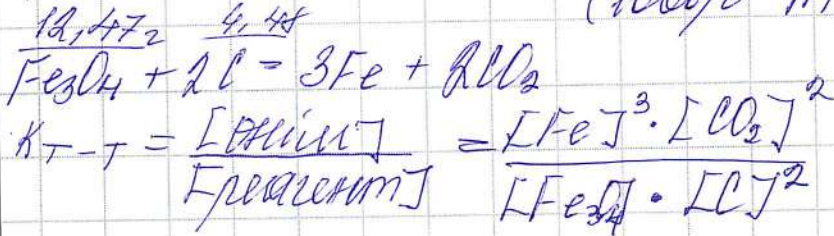 12,47г 4,48
Fe₃O₄ + 2C = 3Fe + 2CO₂
K_T-T = [өнім] / [реагент] = [Fe]³ · [CO₂]² / [Fe₃O₄] · [C]²